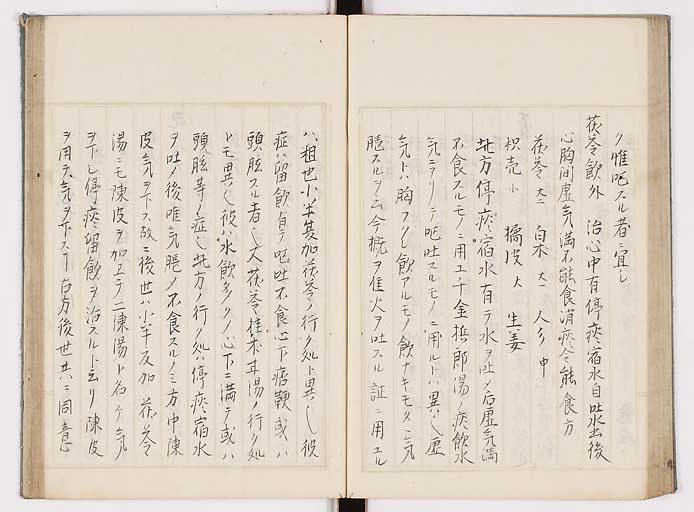 ク惟呕スル者ニ宜シ
茯苓飲外 治心中有停痰宿水自吐出水後
心胸間虚気満不能食消痰令能食方
茯苓 大二 白朮 大一 人参 中
枳壳 小 橘皮 大 生姜
此方停痰宿水有テ水ヲ吐メ后虚気満
不食スルモノニ用ユ千金梹郎湯ハ痰飲水
気ニアリテ呕吐スルモノニ用ルトハ異ハシ虚
気トハ胸フクレ飲アルモノ飲ナキモタヽ気
脹スルヲ云今概ヲ隹火ヲ吐スル証ニ用ユル
ハ粗也小半夏加茯苓ノ行ク処ト異ハシ彼
症ハ留飲有テ呕吐不食心下痞鞕或ハ
頭眩スル者シ又茯苓桂朮甘湯ノ行ク処
トモ異ハシ彼ハ水飲多クノ心下ニ満テ或ハ
頭眩等ノ症シ此方ノ行ク処ハ停痰宿水
ヲ吐メ後唯気脹メ不食スルノミ方中陳
皮気ヲ下ス故ニ後世ハ小半夏加茯苓
湯ニモ陳皮ヲ加エテ二陳湯ト名ケ気
ヲ下シ停痰留飲ヲ治スルト云リ陳皮
ヲ用テ気ヲ下スヿ古方後世共ハニ同意